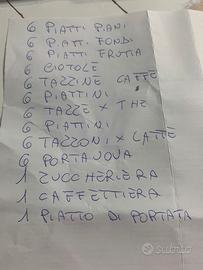 6 PIATTI PIANI
6 PIATTI FONDI
6 PIATTI FRUTTA
6 CIOTOLE
6 TAZZINE CAFFE
6 PIATTINI
6 TAZZE X THE
6 PIATTINI
6 TAZZONI X LATTE
6 PORTAUOVA
1 ZUCCHERIERA
1 CAFFETTIERA
1 PIATTO DI PORTATA
Subito